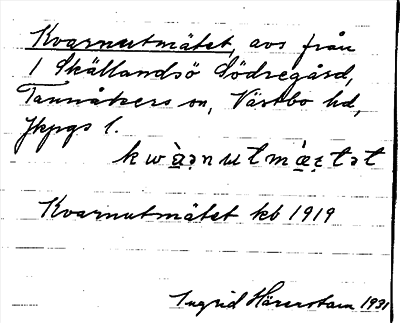 Kvarnutmätet, avs från
1 Skällandsö Södregård,
Tannåkers sn, Västbo hd,
Jkpgs l.
kwàərnutmæ̀ɛtət
Kvarnutmätet kb 1919
Ingrid Härenstam 1931